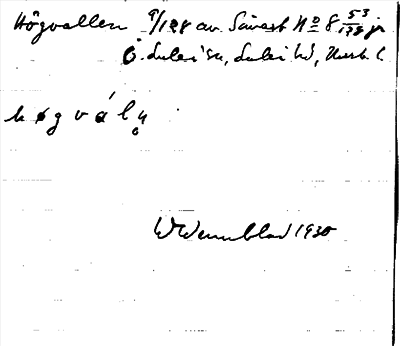 Högvallen 9/128 av Sävast No 8 53/135 jr
Ö. Luleå sn, Luleå hd, Norrb. l.
högválņ
W Wennblad 1930